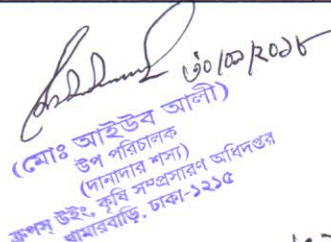 ৩০/০৯/২০১৮
(মোঃ আইউব আলী)
উপ পরিচালক
(দানাদার শস্য)
ক্রপস্ উইং, কৃষি সম্প্রসারণ অধিদপ্তর
খামারবাড়ি, ঢাকা-১২১৫